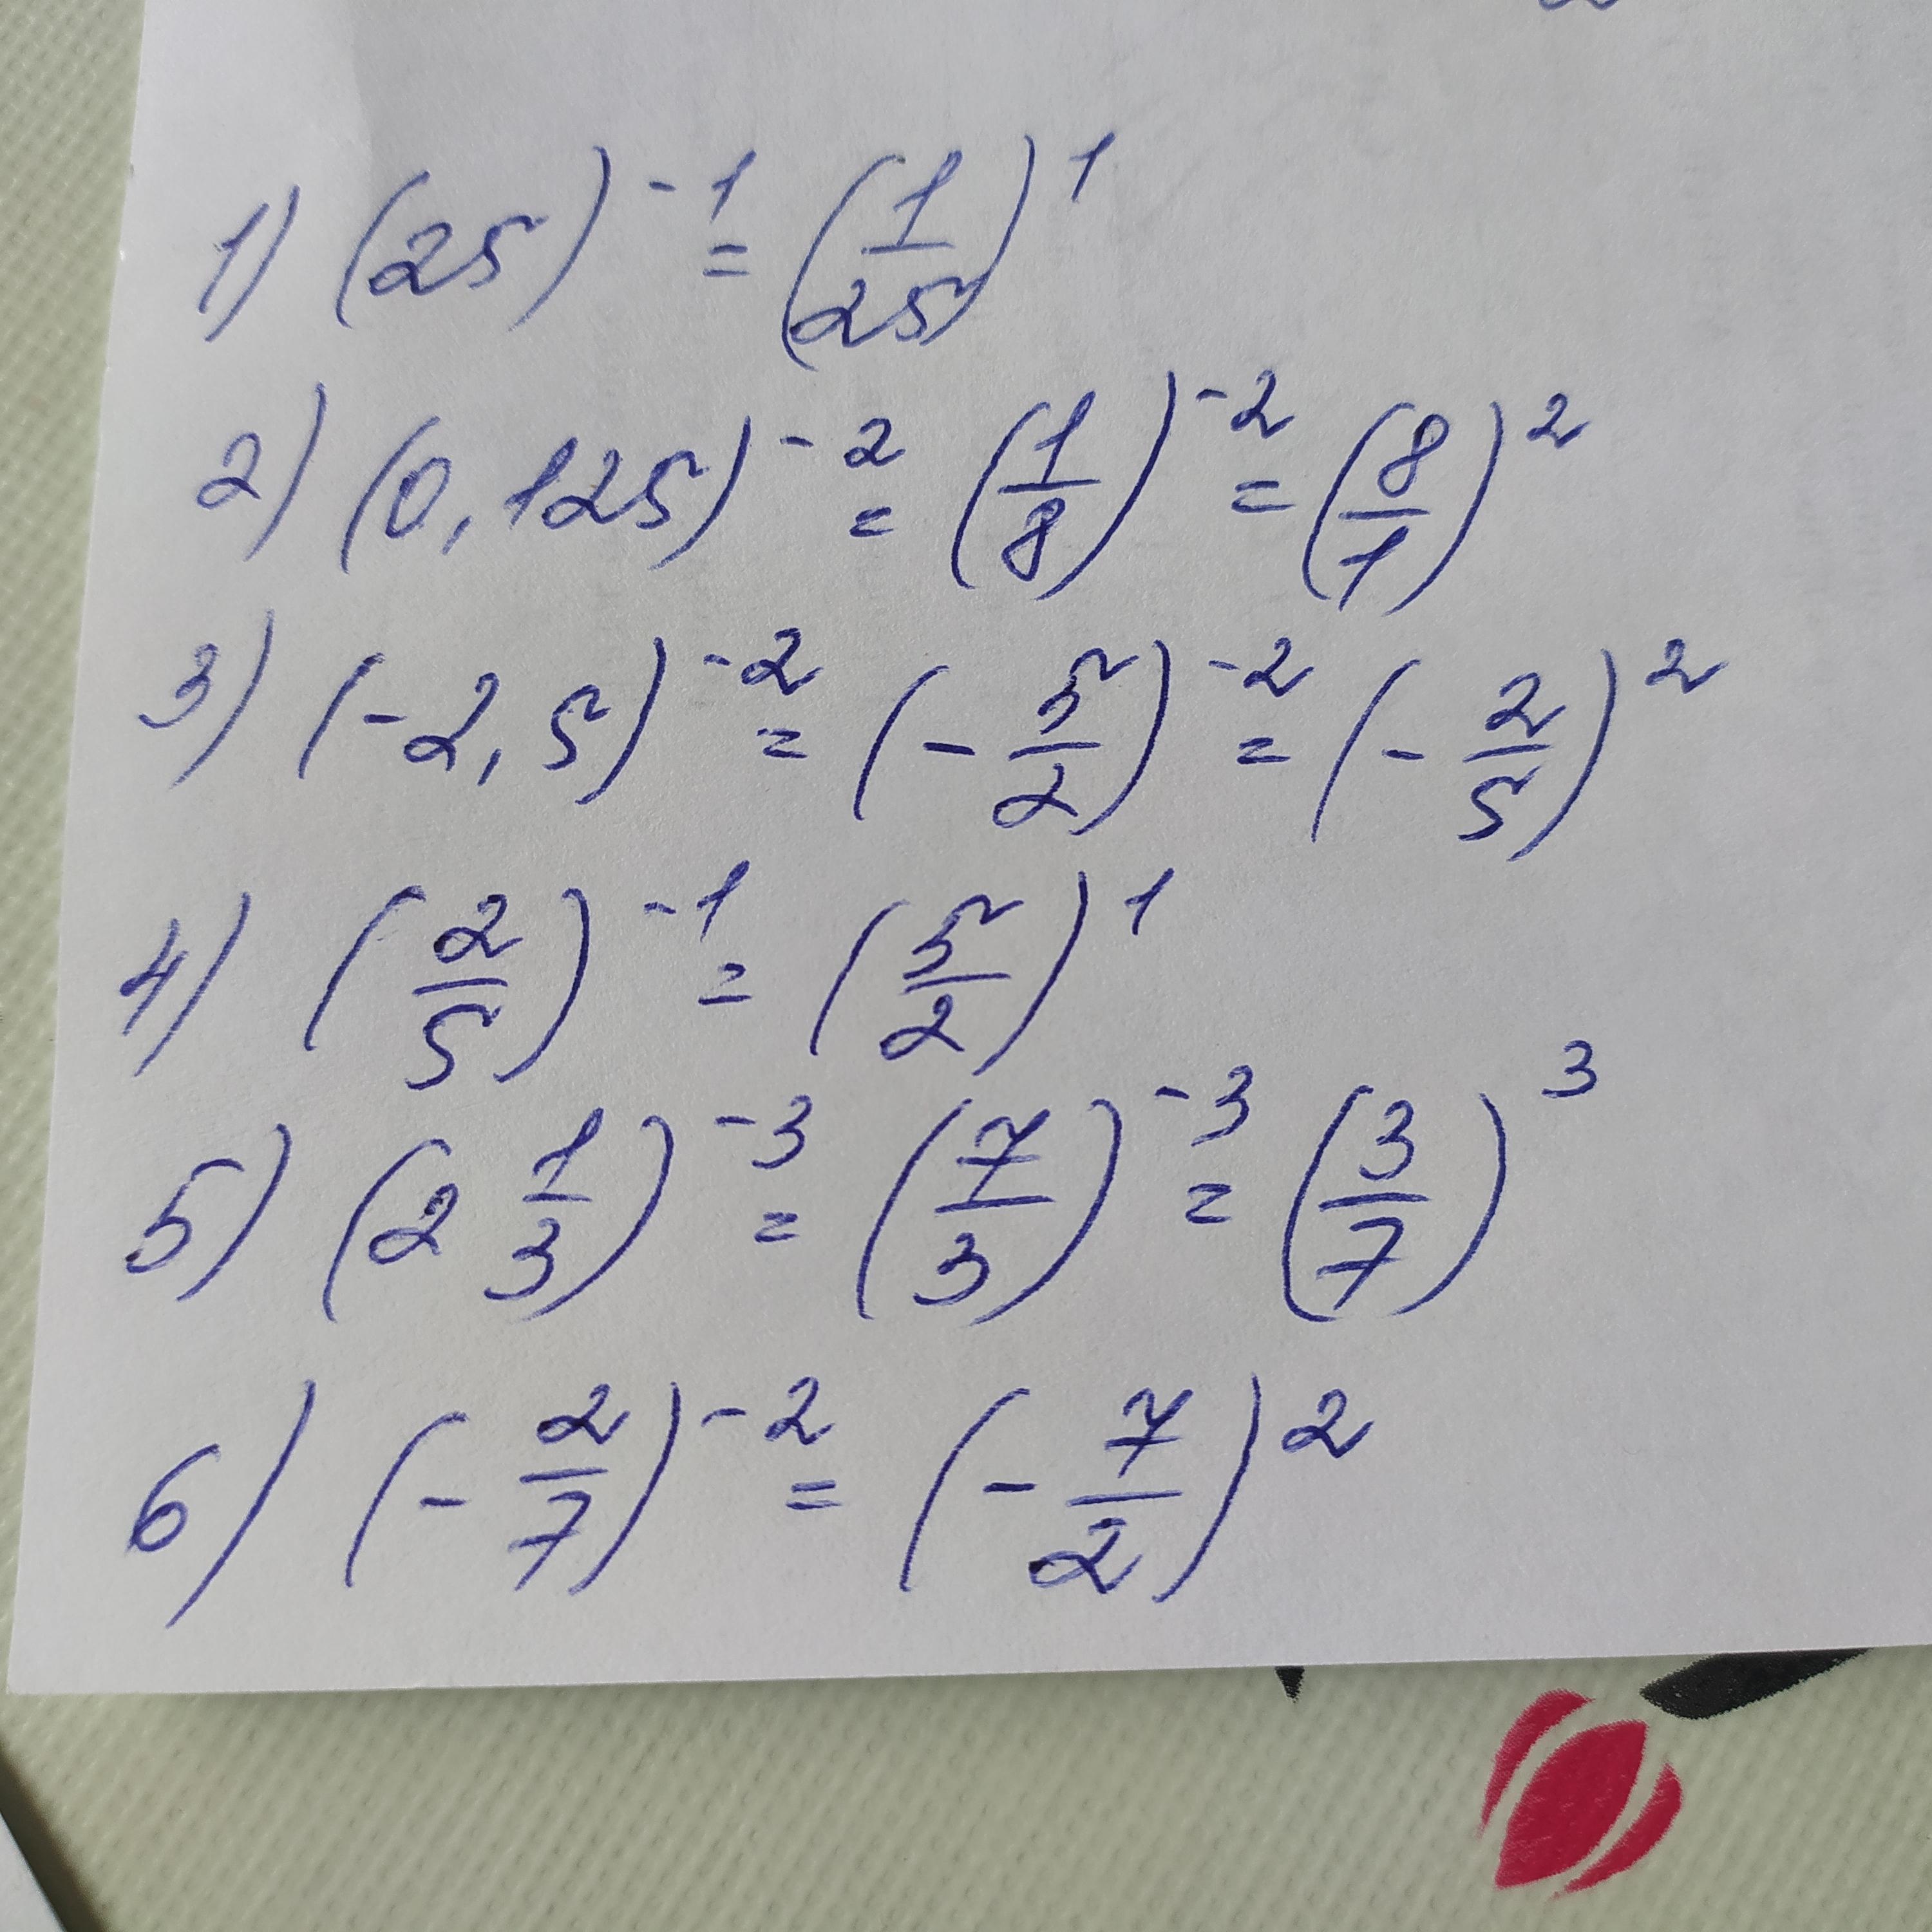 1) (25)^-1 = (1/25)^1
2) (0,125)^-2 = (1/8)^-2 = (8/1)^2
3) (-2,5)^-2 = (-5/2)^-2 = (-2/5)^2
4) (2/5)^-1 = (5/2)^1
5) (2 1/3)^-3 = (7/3)^-3 = (3/7)^3
6) (-2/7)^-2 = (-7/2)^2